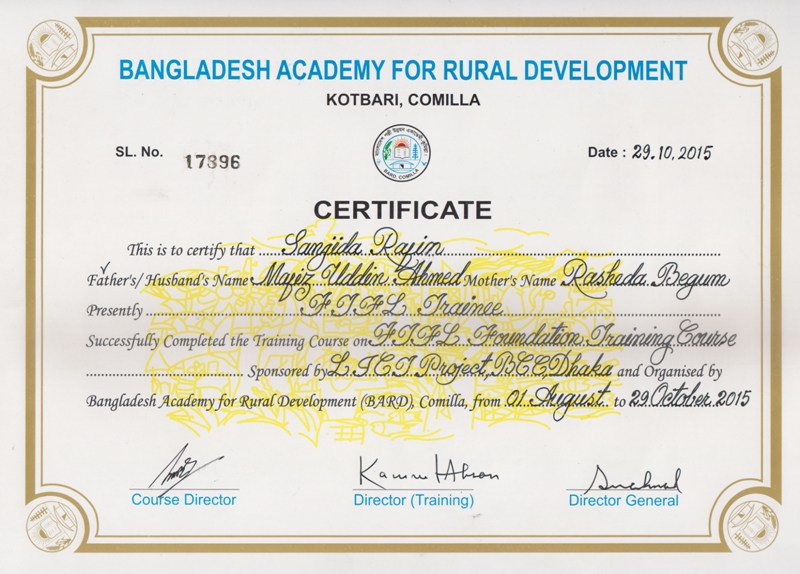 BANGLADESH ACADEMY FOR RURAL DEVELOPMENT
KOTBARI, COMILLA
SL. No. 17396
Date : 29.10.2015
BARD, COMILLA
CERTIFICATE
This is to certify that Sanjida Rajin
Father's/ Husband's Name Mafiz Uddin Ahmed Mother's Name Rasheda Begum
Presently F.T.F.L Trainee
Successfully Completed the Training Course on F.T.F.L Foundation Training Course
Sponsored by L.I.C.T Project, B.C.C, Dhaka and Organised by
Bangladesh Academy for Rural Development (BARD), Comilla, from 01 August to 29 October 2015
Course Director
Director (Training)
Director General